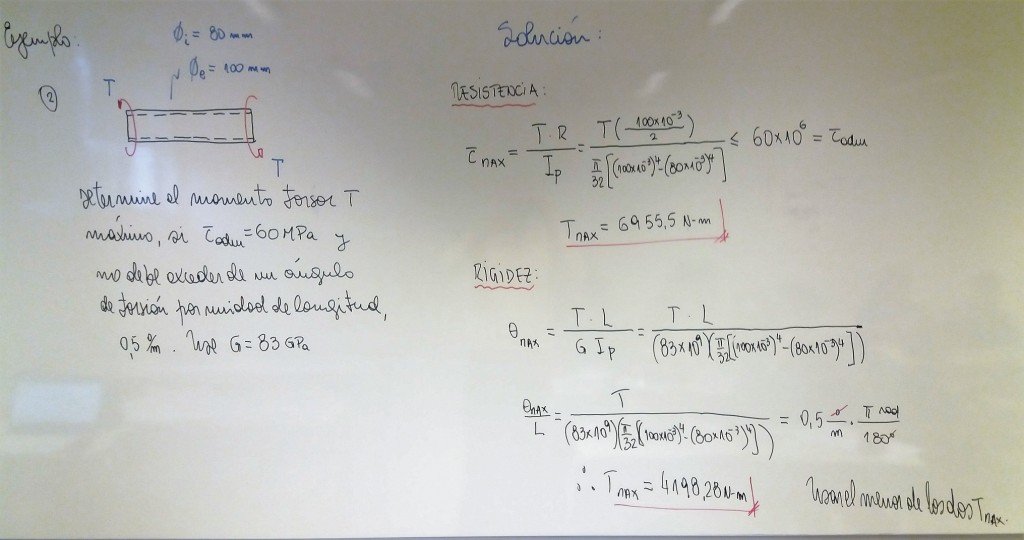 Ejemplo:
②
Øi = 80 mm
Øe = 100 mm
T
T
Determine el momento torsor T
máximo, si τadm = 60 MPa y
no debe exceder de un ángulo
de torsión por unidad de longitud,
0,5 °/m. Use G = 83 GPa
Solución:
RESISTENCIA:
τMAX = T·R / Ip = T(100x10⁻³/2) / π/32[(100x10⁻³)⁴-(80x10⁻³)⁴] ≤ 60x10⁶ = τadm
TMAX = 6955,5 N-m
RIGIDEZ:
θMAX = T·L / G Ip = T·L / (83x10⁹)(π/32[(100x10⁻³)⁴-(80x10⁻³)⁴])
θMAX/L = T / (83x10⁹)(π/32[(100x10⁻³)⁴-(80x10⁻³)⁴]) = 0,5 °/m · π rad/180°
∴ TMAX = 4198,28 N-m
Usar el menor de los dos TMAX.